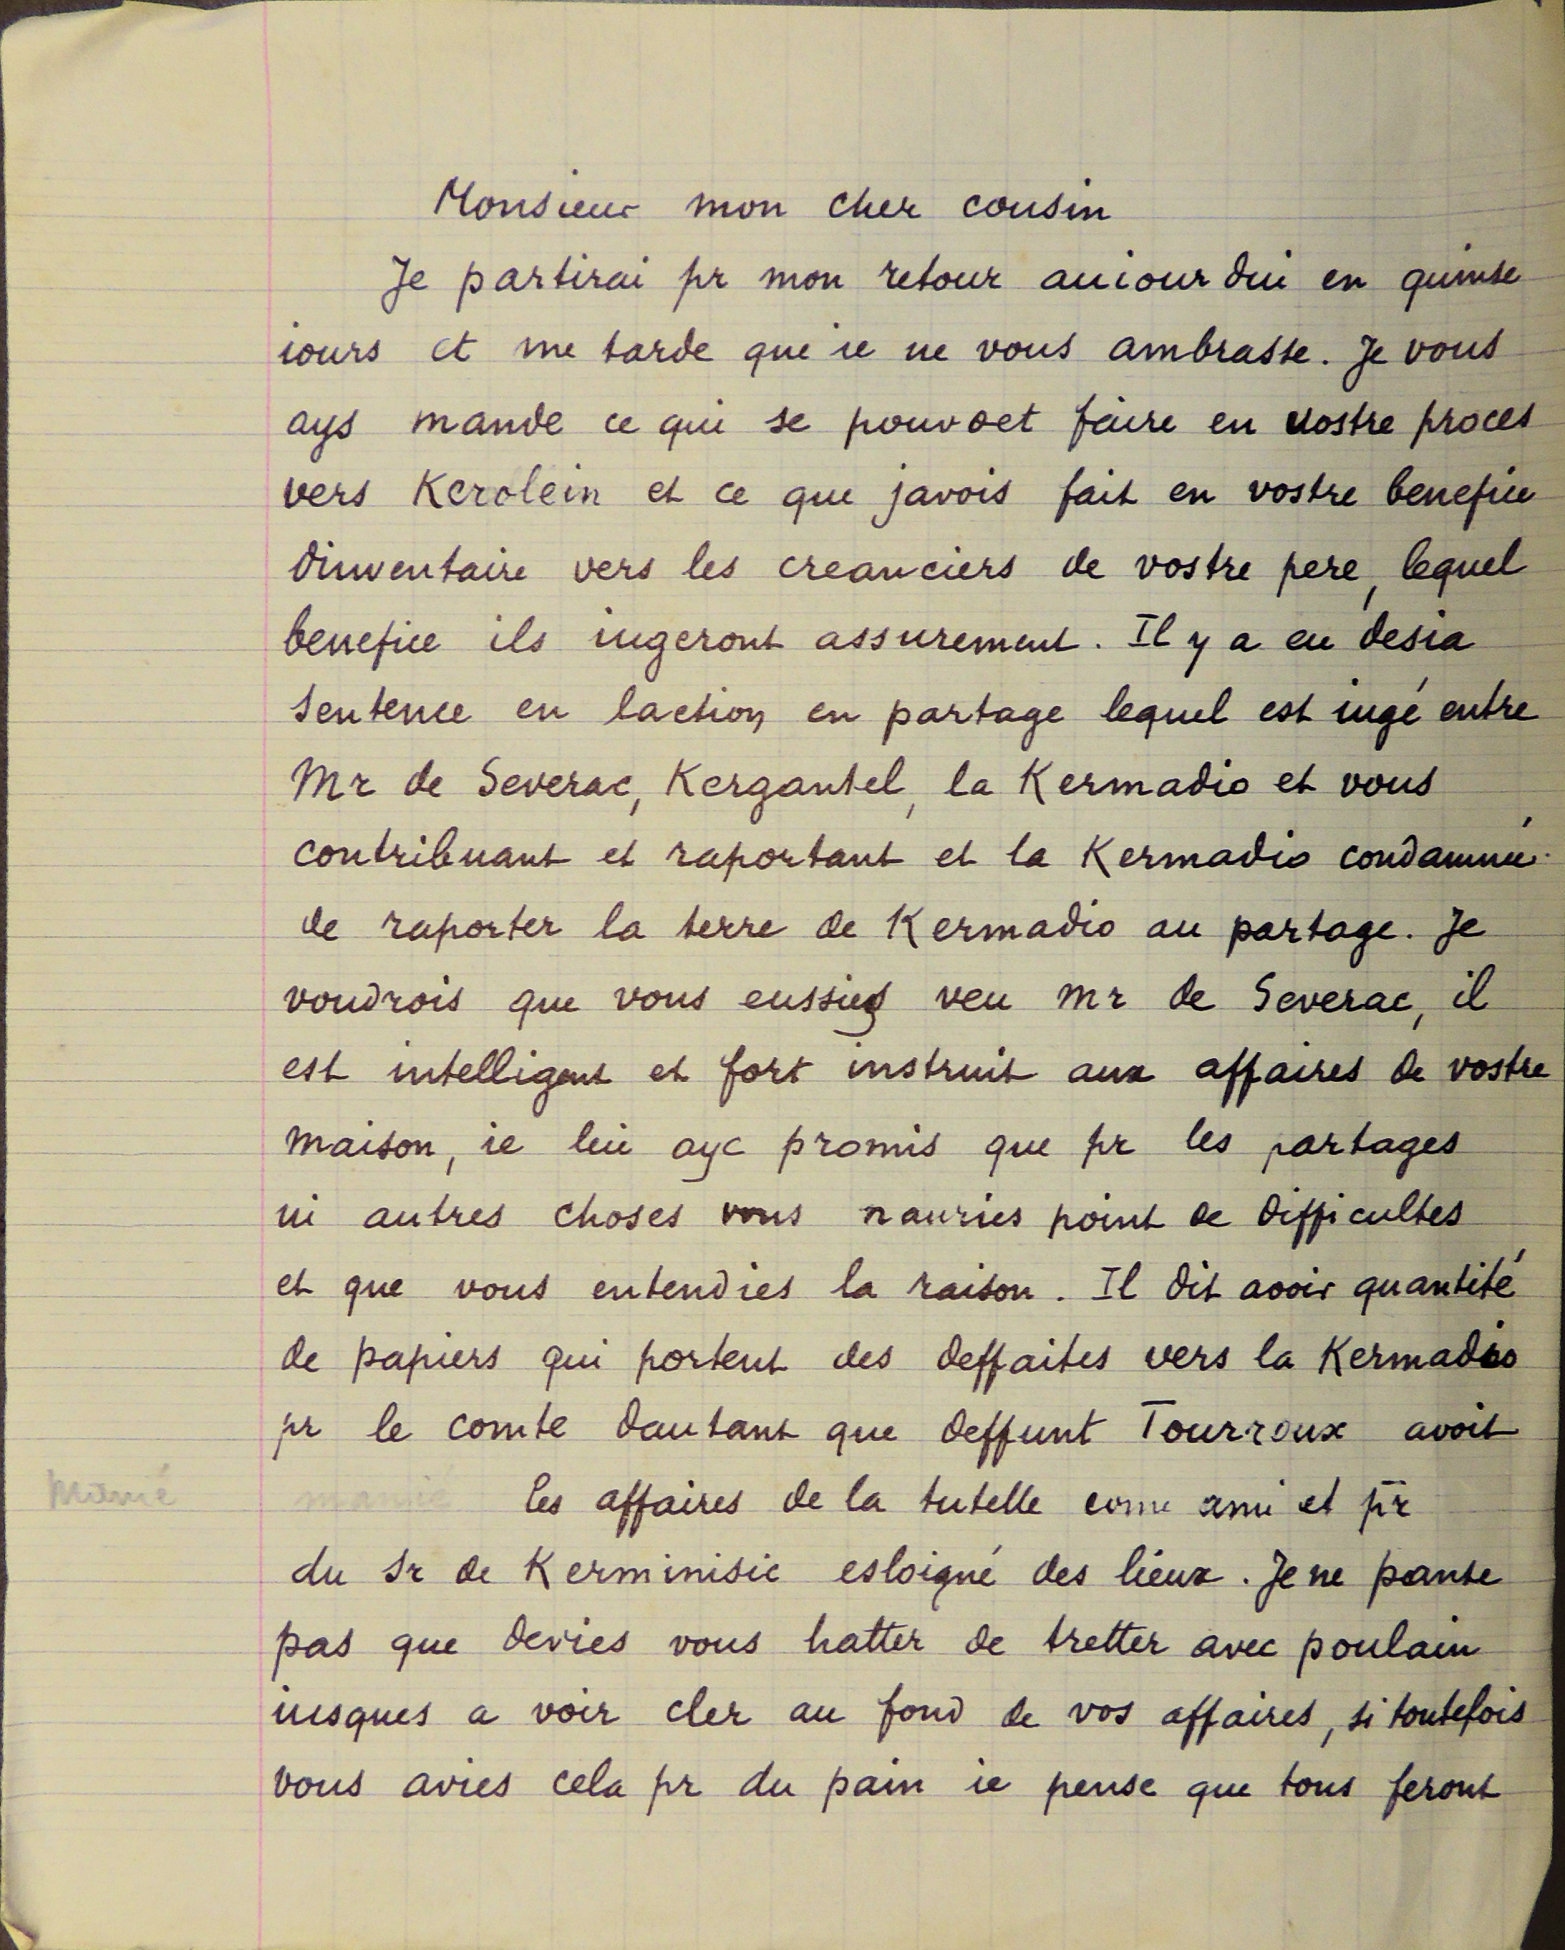 Monsieur mon cher cousin
Je partirai pr mon retour auiourdui en quinse
iours et me tarde que ie ne vous ambrasse. Je vous
ays mande ce qui se pouvoet faire en vostre proces
vers Kerolein et ce que javois fait en vostre benefice
dinventaire vers les creanciers de vostre pere, lequel
benefice ils iugeront assurement. Il y a eu desia
sentence en laction en partage lequel est iugé entre
Mr de Severac, Kergantel, la Kermadio et vous
contribuant et raportant et la Kermadio condamnée
de raporter la terre de Kermadio au partage. Je
voudrois que vous eussies veu Mr de Severac, il
est intelligent et fort instruit aux affaires de vostre
maison, ie lui ay promis que pr les partages
ni autres choses vous nauries point de difficultes
et que vous entendies la raison. Il dit avoir quantité
de papiers qui portent des deffaites vers la Kermadio
pr le comte dautant que deffunt Tourroux avoit
manié manié les affaires de la tutelle come ami et pr
du Sr de Kerminisic esloigné des lieux. Je ne panse
pas que devies vous hatter de tretter avec poulain
iusques a voir cler au fond de vos affaires, si toutefois
vous avies cela pr du pain ie pense que tous feront